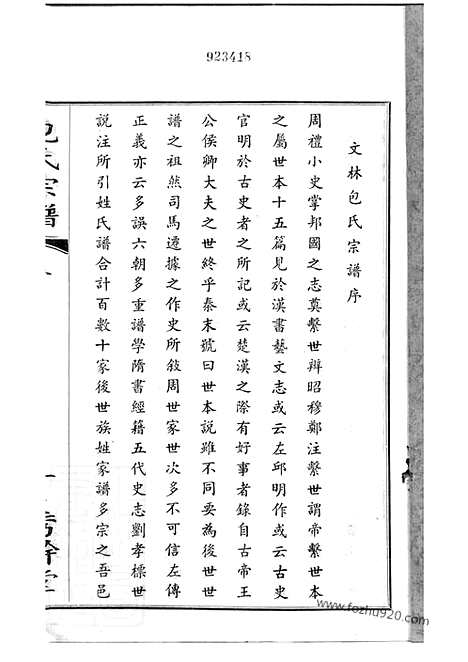 923418
文林包氏宗譜序
周禮小史掌邦國之志奠繫世辨昭穆鄭注繫世謂帝繫世本
之屬世本十五篇見於漢書藝文志或云左邱明作或云古史
官明於古史者之所記或云楚漢之際有好事者錄自古帝王
公侯卿大夫之世終乎秦末號曰世本說雖不同要為後世世
譜之祖然司馬遷據之作史所敍周世家世次多不可信左傳
正義亦云多誤六朝多重譜學隋書經籍五代史志劉孝標世
說注所引姓氏譜合計百數十家後世族姓家譜多宗之吾邑
包氏宗譜
www.fozhu920.com